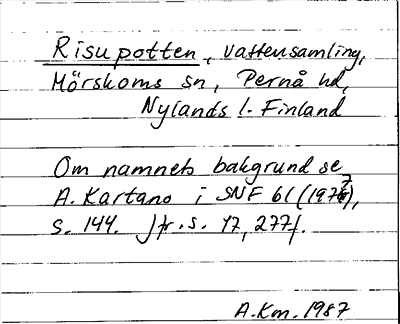 Risupotten, vattensamling,
Mörskoms sn, Pernå hd,
Nylands l. Finland
Om namnets bakgrund se
A. Kartano i SNF 61 (1977),
s. 144. Jfr. s. 17, 277f.
A.Km. 1987